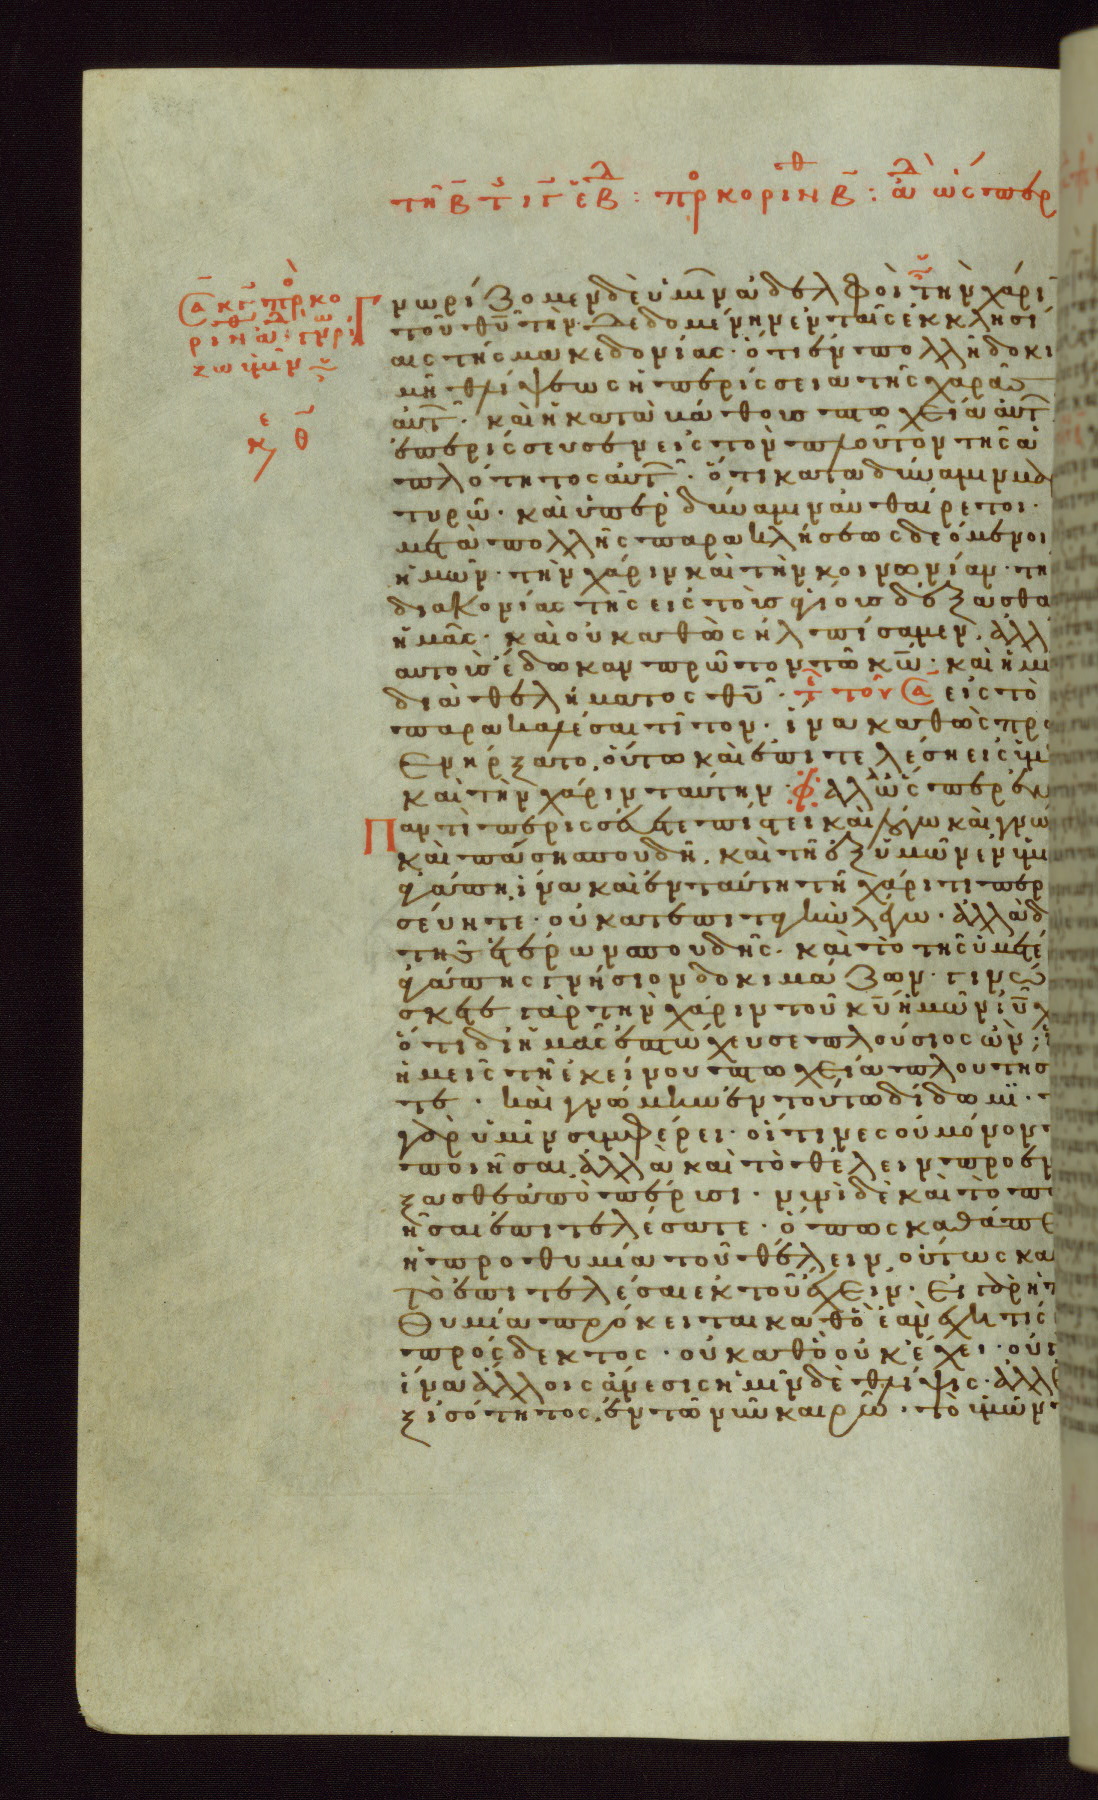 τῆ β̄ τ̄ ιγ̄ εβλ: πρ̊ κοριν̄θ β̄: ἀλ ὥσπερ
ᾱ κῡ πρὸ κο
ρινθ ᾱ: γνωρι
ζω ὑμῖν
κε θ̄
Γνωρίζομεν δὲ ὑμῖν ἀδελφοὶ τὴν χάρι
τοῦ θῡ τὴν δεδομένην ἐν ταῖς ἐκκλησί
αις τῆς μακεδονίας· ὅτι ἐν πολλῆ δοκι
μῆ θλίψεως ἡ περίσσεια τῆς χαρᾶς
αὐτ̄· καὶ ἡ κατὰ βάθους πτωχεία αὐτ̄
ἐπερίσσευσεν εἰς τὸν πλοῦτον τῆς ἁ
πλότητος αὐτ̄· ὅτι κατα δύναμιν μα
τυρῶ· καὶ ὑπὲρ δύναμιν αὐθαίρετοι·
μετὰ πολλῆς παρακλήσεως δεόμενοι
ἡμῶν· τὴν χάριν καὶ τὴν κοινωνίαν· τη
διακονίας τῆς εἰς τοὺς ἁγίους δέξασθα
ἡμᾶς· καὶ οὐ καθὼς ἠλπίσαμεν. ἀλλ
αυτοὺς ἔδωκαν πρῶτον τῶ κω̄· καὶ ἡμ
διὰ θελήματος θῡ· τε τοῦ ᾱ εἰς τὸ
παρακαλέσαι τίτον· ἵνα καθὼς προ
ενήρξατο, οὕτω καὶ ἐπιτελέση εἰς ὑμ
καὶ τὴν χάριν ταύτην· ἀλ ὥσπερ ἐν
Παντὶ περισσεύετε πίστει καὶ λόγω καὶ γνώ
καὶ πάση σπουδῆ. καὶ τῆ ἐξ ὑμῶν ἐν ἡμ
ἀγάπη· ἵνα καὶ ἐν ταύτη τῆ χάριτι περ
σεύητε· οὐ κατ ἐπιταγὴν λέγω· ἀλλὰ δ
τῆς ἑτέρων σπουδῆς· καὶ τὸ τῆς ὑμετέ
ἀγάπης γνήσιον δοκιμάζων· γινώ
σκετε γὰρ τὴν χάριν τοῦ κῡ ἡμῶν ιῡ χ
ὅτι δι ἡμᾶς ἐπτώχευσε πλούσιος ὤν; ἵ
ἡμεῖς τῆ ἐκείνου πτωχεία πλουτησ
τε· καὶ γνώμην ἐν τούτω δίδωμι· τ
γὰρ ὑμῖν συμφέρει· οἵτινες οὐ μόνον τ
ποιῆσαι ἀλλὰ καὶ τὸ θέλειν προεν
ξασθε ἀπὸ πέρυσι· νυνὶ δὲ καὶ τὸ πο
ῆσαι ἐπιτελέσατε· ὅπως καθάπε
ἡ προθυμία τοῦ θέλειν, οὕτως κα
τὸ ἐπιτελέσαι ἐκ τοῦ ἔχειν· Εἰ γὰρ ἡ π
θυμία πρόκειται καθὸ ἐὰν ἔχη τίς
πρόσδεκτος· οὐ καθὸ οὐκ ἔχει· οὐ γ
ἵνα ἄλλοις ἄνεσις ἡμῖν δὲ θλίψις· ἀλλ ἐ
ξ ἰσότητος, ἐν τῶ νῦν καιρῶ· τὸ ὑμῶν